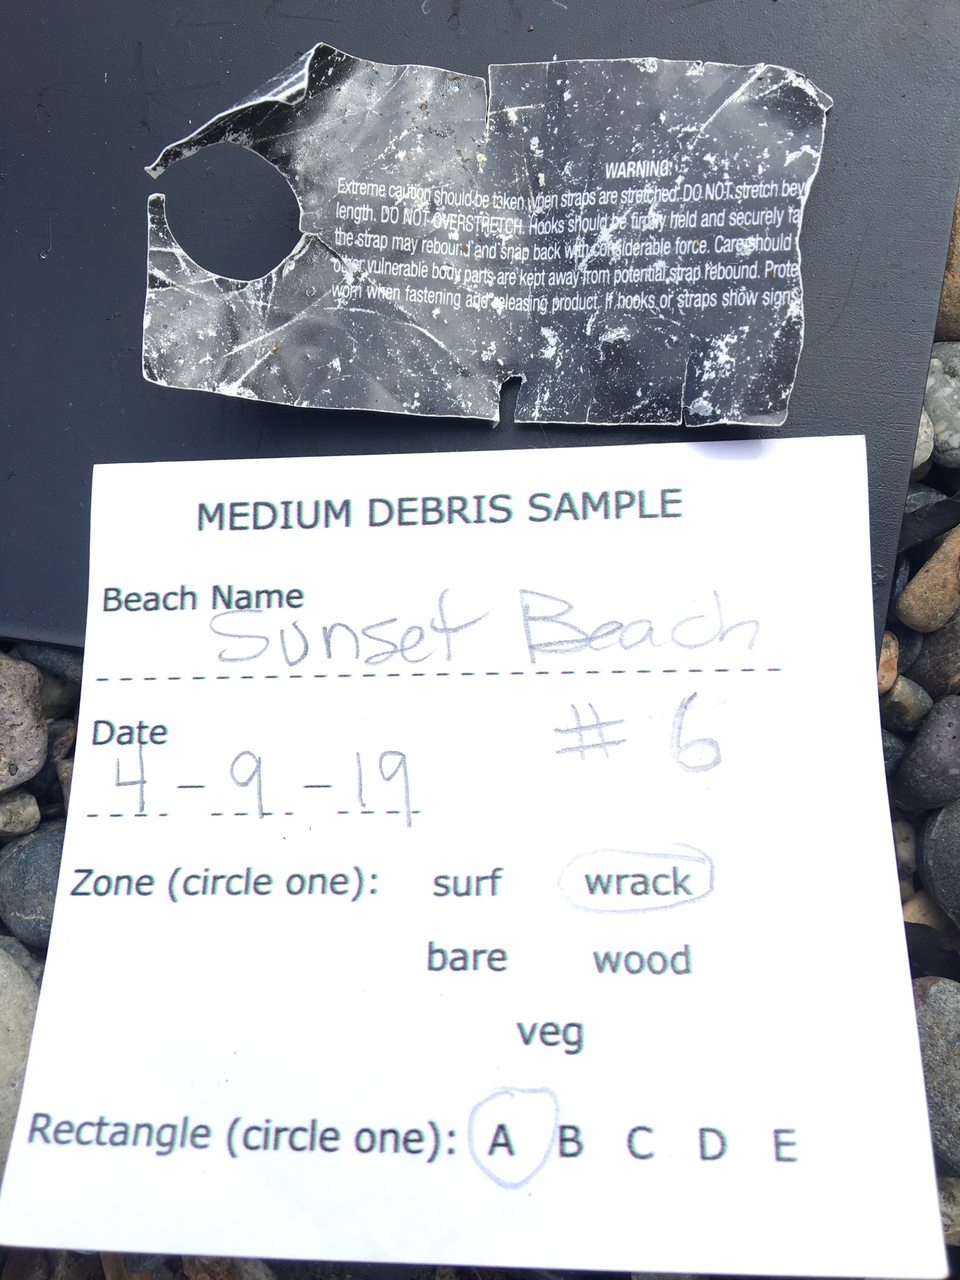 WARNING:
Extreme caution should be taken when straps are stretched. DO NOT stretch bey
length. DO NOT OVERSTRETCH. Hooks should be firmly held and securely fa
the strap may rebound and snap back with considerable force. Care should
other vulnerable body parts are kept away from potential strap rebound. Prote
worn when fastening and releasing product. If hooks or straps show signs
MEDIUM DEBRIS SAMPLE
Beach Name
Sunset Beach
Date
# 6
4 - 9 - 19
Zone (circle one): surf wrack
bare wood
veg
Rectangle (circle one): A B C D E